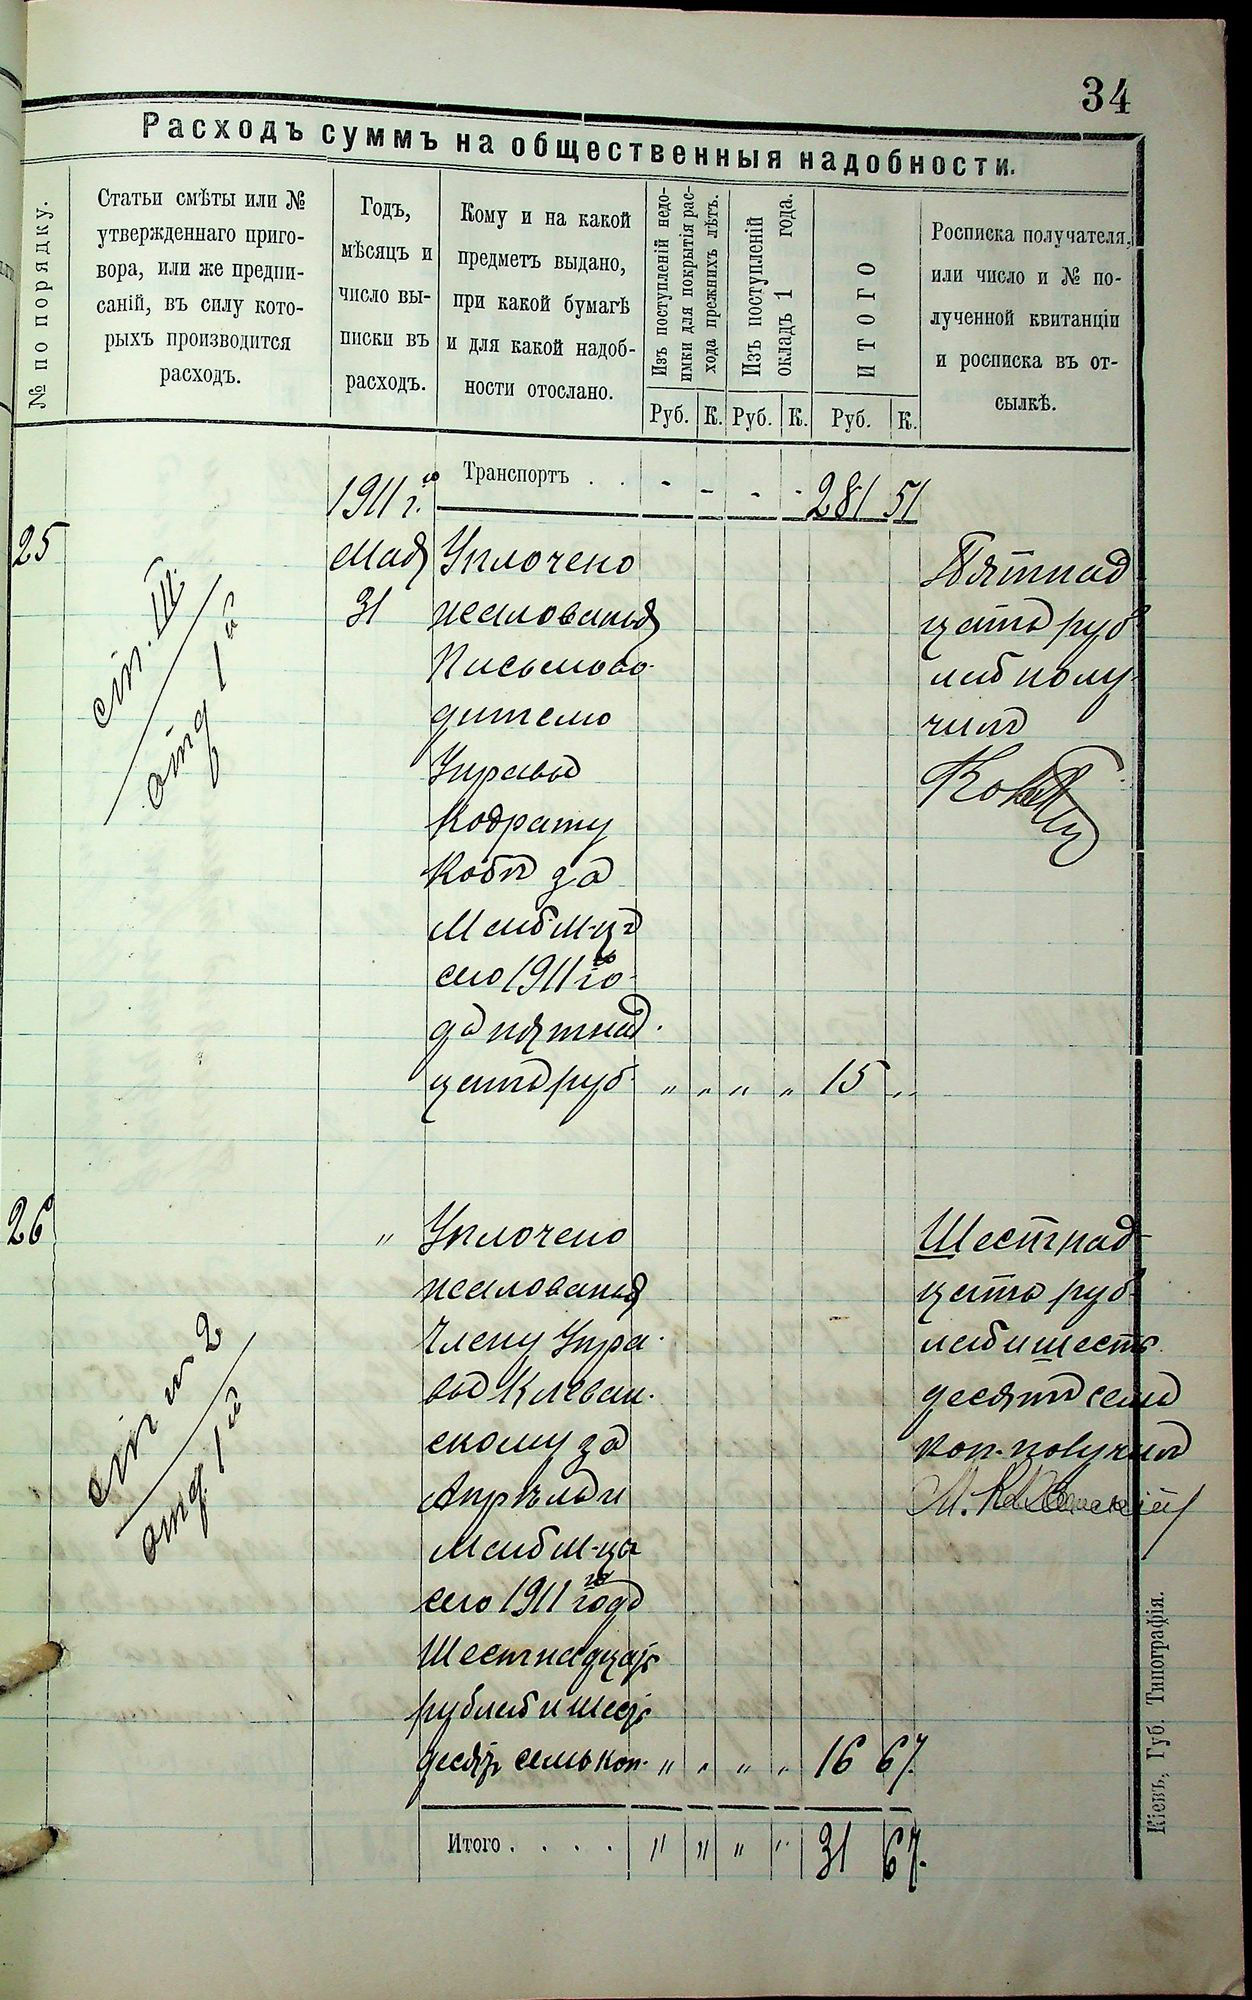 34
Расходъ суммъ на общественныя надобности.
№ по порядку.
Статьи смѣты или №
утвержденнаго приго-
вора, или же предпи-
саній, въ силу кото-
рыхъ производится
расходъ.
Годъ,
мѣсяцъ и
число вы-
писки въ
расходъ.
Кому и на какой
предметъ выдано,
при какой бумагѣ
и для какой надоб-
ности отослано.
Изъ поступленій недо-
имки для покрытія рас-
хода прежнихъ лѣтъ.
Изъ поступленій
окладъ 1 года.
ИТОГО
Росписка получателя,
или число и № по-
лученной квитанціи
и росписка въ от-
сылкѣ.
Руб. К. Руб. К. Руб. К.
1911 г. Транспортъ . . - - - - 281 51
25
ст. III.
отд 1й
Мая
31
Уплочено
жалованья
Письмово-
дителю
Управы
Кодрату
за
Май м-цъ
сего 1911 го-
да пятнад-
цать руб. „ „ „ „ 15 „
Пятнад
цать руб
лей полу-
чилъ
26
ст и 2
отд. 1й
„
Уплочено
жалованья
Члену Упра-
вы Клеван-
скому за
Апрѣль и
Май м-цы
сего 1911 года
Шестнадцать
рублей и шесть
десятъ семь коп. „ „ „ „ 16 67.
Шестнад-
цать руб-
лей и шесть
десятъ семь
коп. получилъ
Итого . . . . „ „ „ „ 31 67.
Кіевъ, Губ. Типографія.